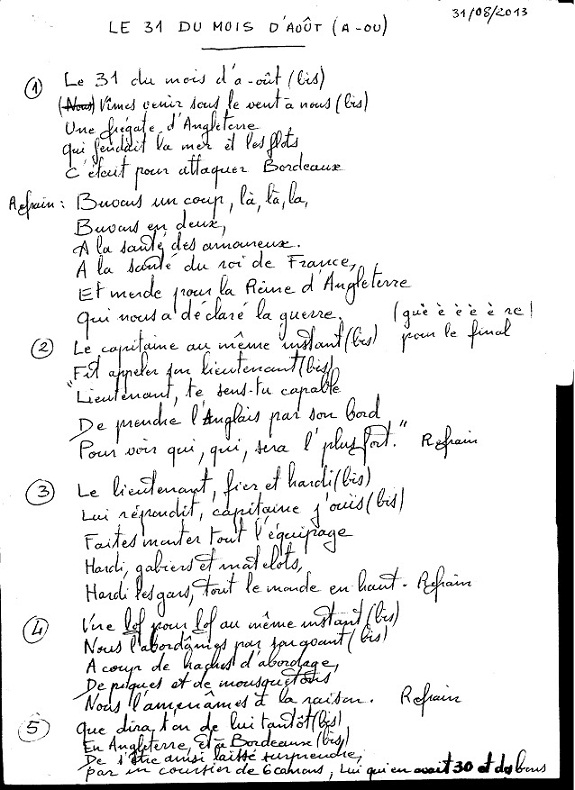 31/08/2013
LE 31 DU MOIS D'AOÛT (A-OU)
① Le 31 du mois d'a-oût (bis)
(Nous) Vîmes venir sous le vent à nous (bis)
Une frégate d'Angleterre
Qui fendait la mer et les flots
C'était pour attaquer Bordeaux
Refrain : Buvons un coup, là, là, la,
Buvons en deux,
A la santé des amoureux.
A la santé du roi de France,
Et merde pour la Reine d'Angleterre
Qui nous a déclaré la guerre. (guè è è è è re) pour le final
② Le capitaine au même instant (bis)
Fit appeler son lieutenant (bis)
"Lieutenant, te sens-tu capable
De prendre l'Anglais par son bord
Pour voir qui, qui, sera l'plus fort." Refrain
③ Le lieutenant, fier et hardi (bis)
Lui répondit, capitaine j'ouïs (bis)
Faites monter tout l'équipage
Hardi, gabiers et matelots,
Hardi les gars, tout le monde en haut. Refrain
④ Vire lof pour lof au même instant (bis)
Nous l'abordâmes par son avant (bis)
A coup de haches d'abordage,
De piques et de mousquetons
Nous l'amenâmes à la raison. Refrain
⑤ Que dira t'on de lui tantôt (bis)
En Angleterre, et à Bordeaux (bis)
De s'être ainsi laissé surprendre,
par un coursier de 6 canons, Lui qui en avait 30 et des bons